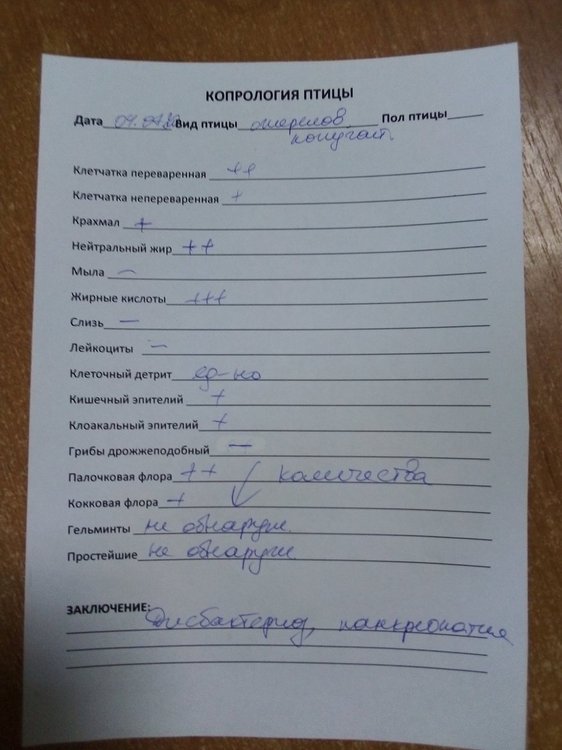 КОПРОЛОГИЯ ПТИЦЫ
Дата 09.04. Вид птицы ожерелов Пол птицы
попугай.
Клетчатка переваренная ++
Клетчатка непереваренная +
Крахмал +
Нейтральный жир ++
Мыла —
Жирные кислоты +++
Слизь —
Лейкоциты —
Клеточный детрит ед-но
Кишечный эпителий +
Клоакальный эпителий +
Грибы дрожжеподобный —
Палочковая флора ++ количества
Кокковая флора +
Гельминты не обнаруж.
Простейшие не обнаруж.
ЗАКЛЮЧЕНИЕ: Дисбактериоз, панкреопатия